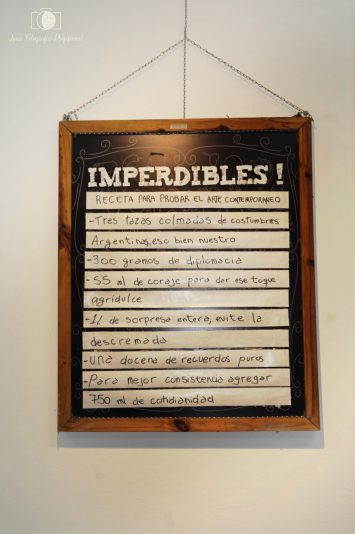 IMPERDIBLES!
RECETA PARA PROBAR EL ARTE CONTEMPORANEO
-Tres tazas colmadas de costumbres
Argentinas, eso bien nuestro
-300 gramos de diplomacia
-55 ml de coraje para dar ese toque
agridulce
-1l de sorpresa entera, evite la
descremada
-Una docena de recuerdos puros
-Para mejor consistencia agregar
750 ml de cotidianidad